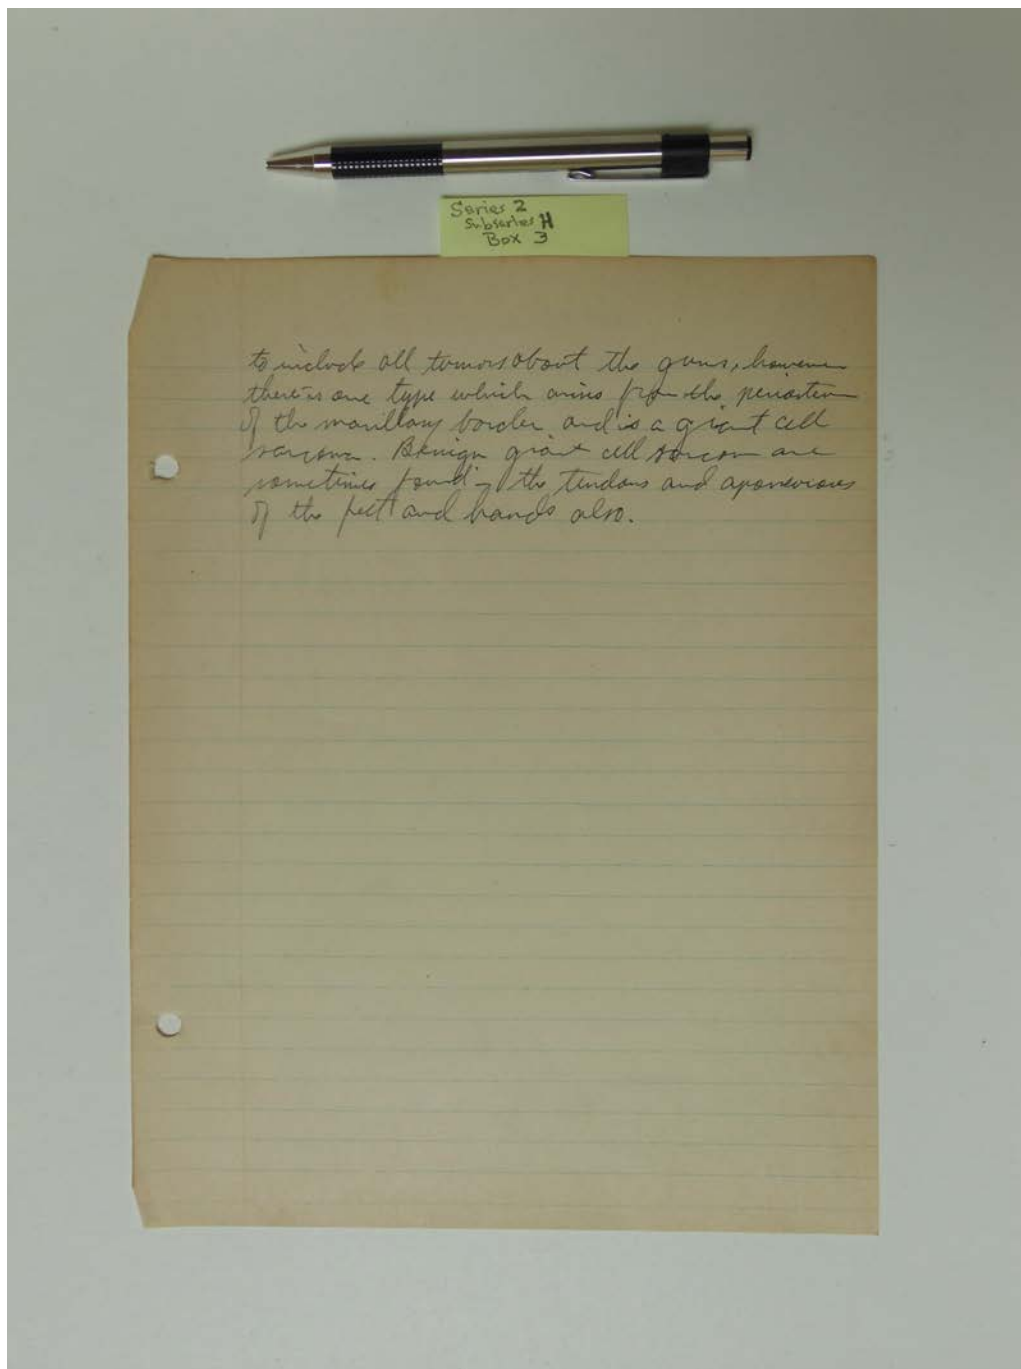 Series 2
Subseries H
Box 3
to include all tumors about the gums, however
there is one type which arises from the periosteum
of the maxillary border and is a giant cell
sarcoma. Benign giant cell sarcoma are
sometimes found in the tendons and aponeuroses
of the feet and hands also.